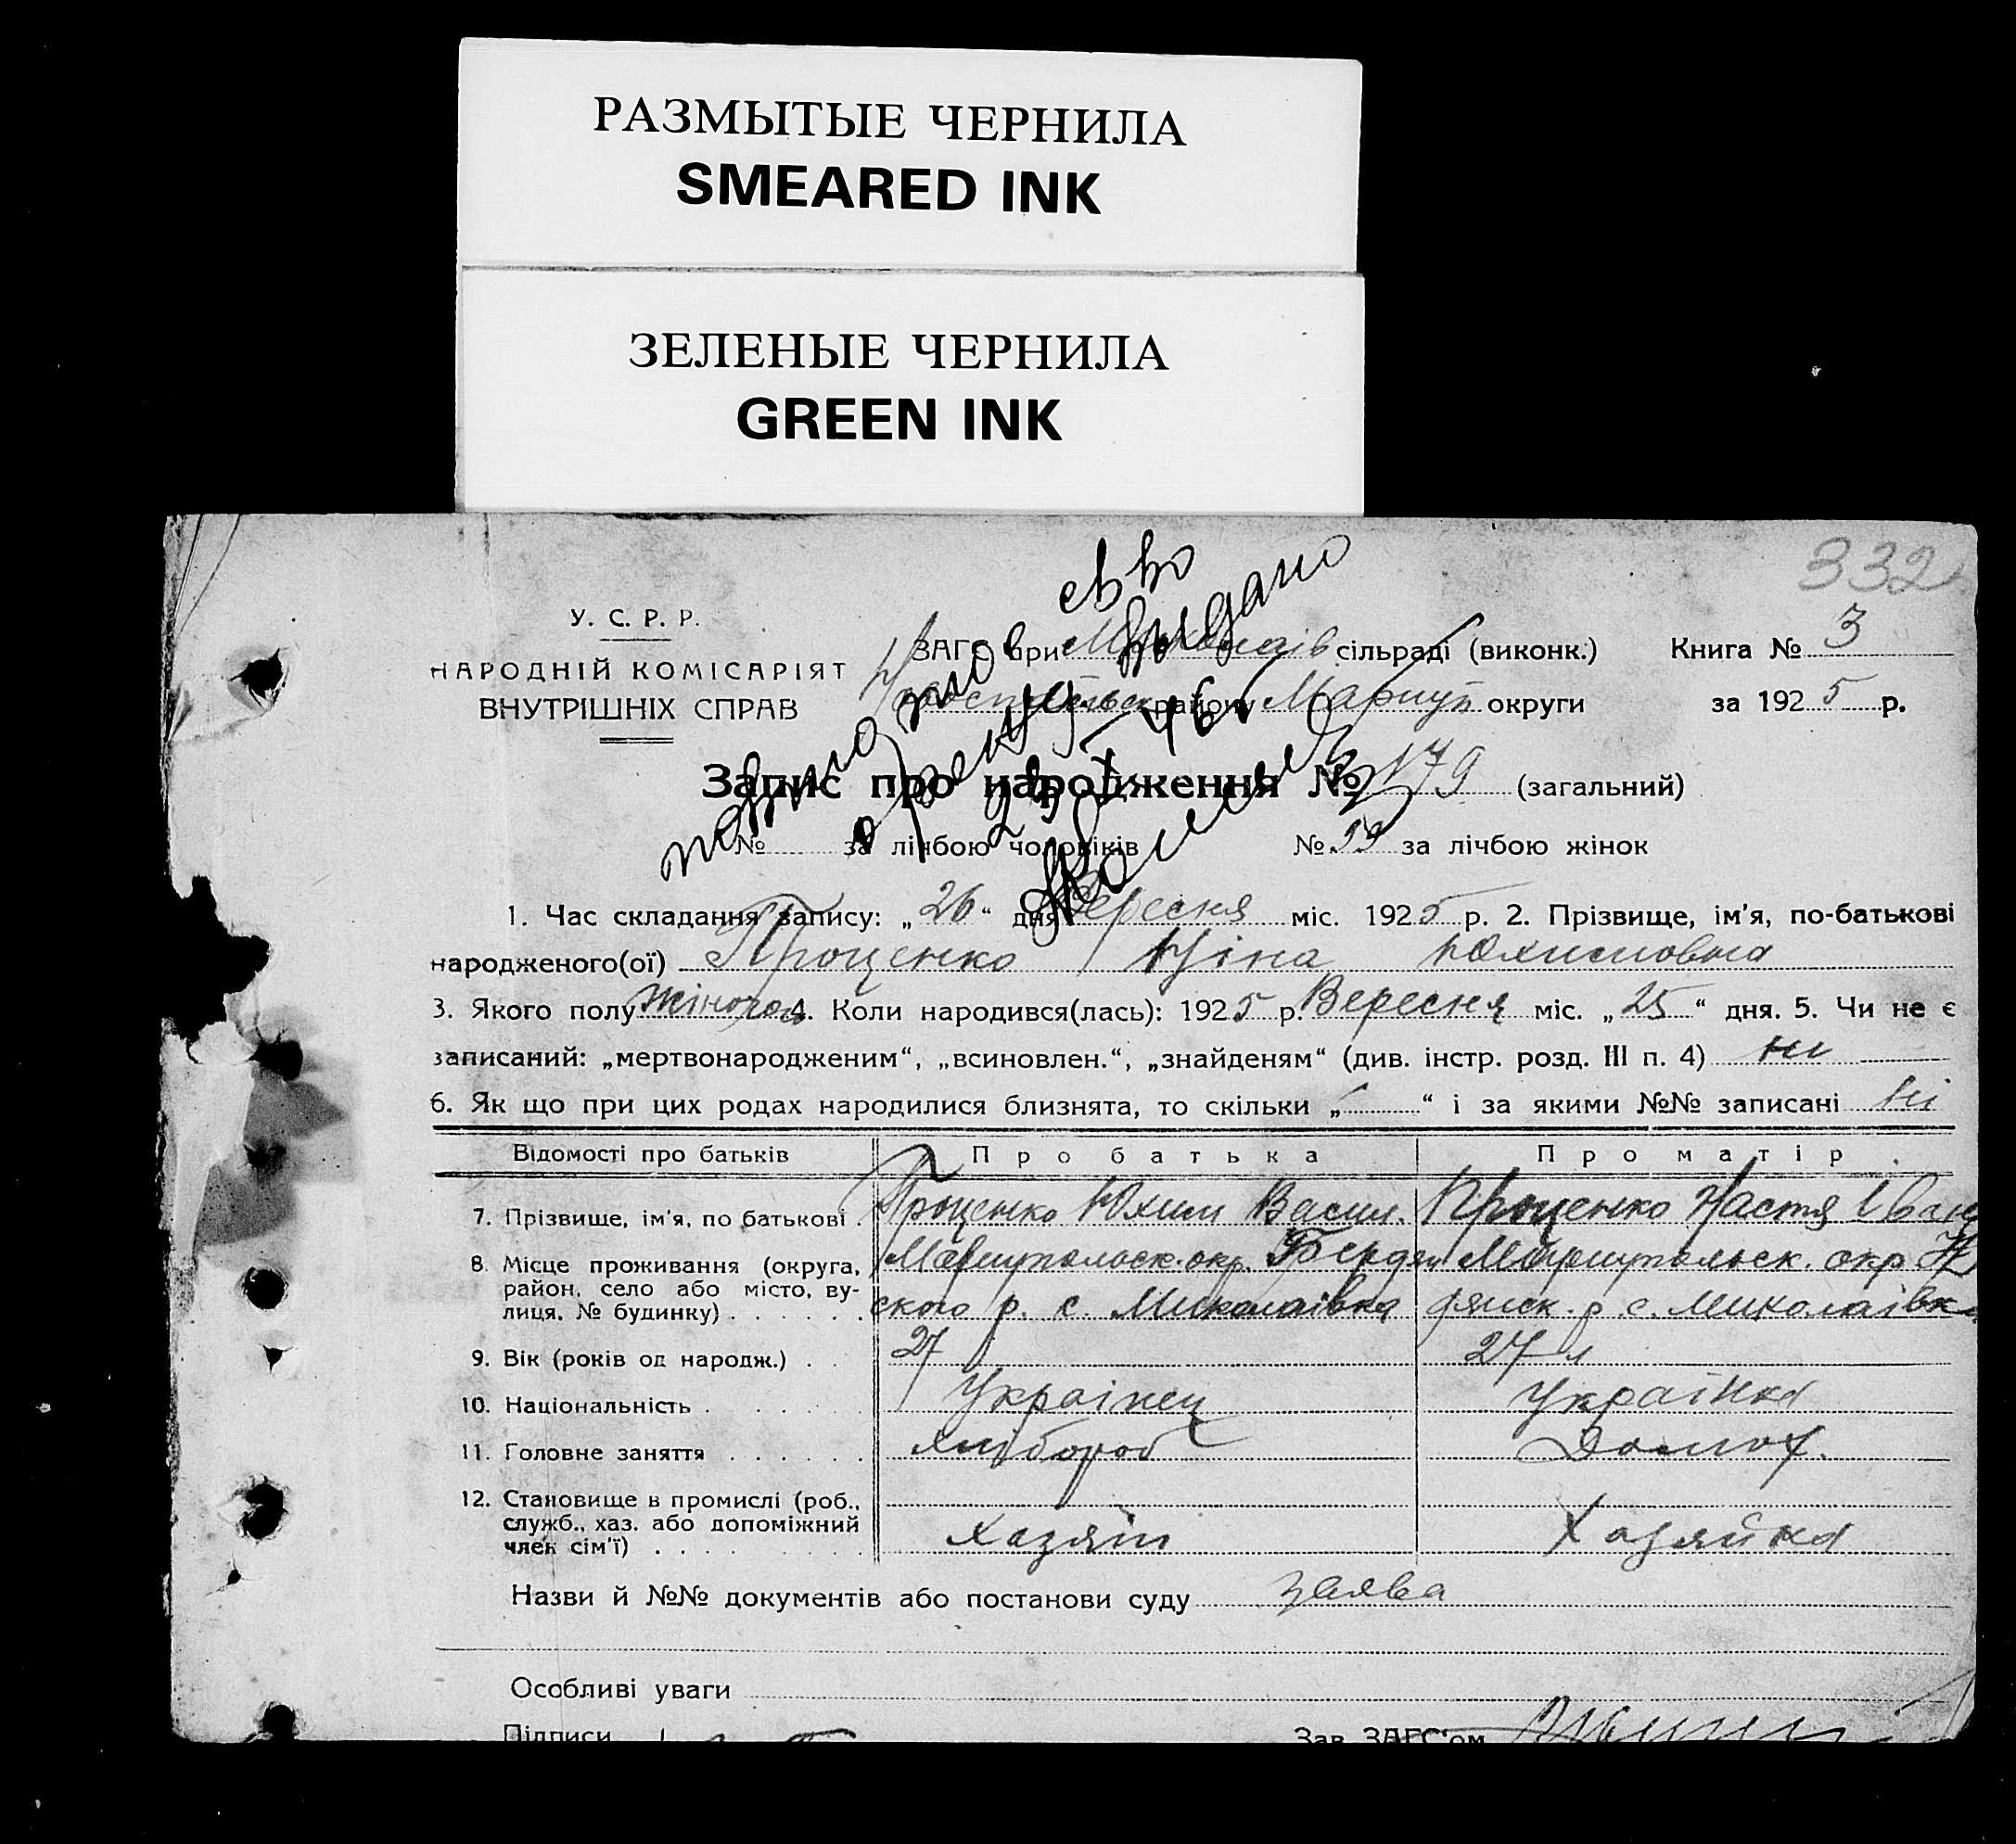 РАЗМЫТЫЕ ЧЕРНИЛА
SMEARED INK
ЗЕЛЕНЫЕ ЧЕРНИЛА
GREEN INK
332
У. С. Р. Р.
НАРОДНІЙ КОМІСАРІЯТ
ВНУТРІШНІХ СПРАВ
ЗАГС при Миколаїв сільраді (виконк.)
району Маріуп округи
Книга № 3
за 1925 р.
євко
видано
Запис про народження № 179 (загальний)
№ за лічбою чоловіків № 99 за лічбою жінок
1. Час складання запису: „26“ дня Вересня міс. 1925 р. 2. Прізвище, ім'я, по-батькові
народженого(ої) Проценко Ніна Юхимовна
3. Якого полу жіночого 4. Коли народився(лась): 1925 р. Вересня міс. „25“ дня. 5. Чи не є
записаний: „мертвонародженим“, „всиновлен.“, „знайденям“ (див. інстр. розд. III п. 4) ни
6. Як що при цих родах народилися близнята, то скільки „-“ і за якими №№ записані ні
Відомості про батьків Про батька Про матір
7. Прізвище, ім'я, по батькові . Проценко Юхим Васил. Проценко Настя Іван
8. Місце проживання (округа, Маріупольск. окр. Бердян Маріупольск. окр
район, село або місто, ву- ского р. с. Миколаівка дянск. р с. Миколаівка
лиця, № будинку) . . . . . .
9. Вік (років од народж.) . . 27 27 л
10. Національність . . . . . Українец Українка
11. Головне заняття . . . . . . хлібороб Домог.
12. Становище в промислі (роб.,
служб., хаз. або допоміжний Хазяїн Хазяйка
член сім'ї) . . . . . . . .
Назви й №№ документів або постанови суду заява
Особливі уваги
Підписи Зав. ЗАГС'ом